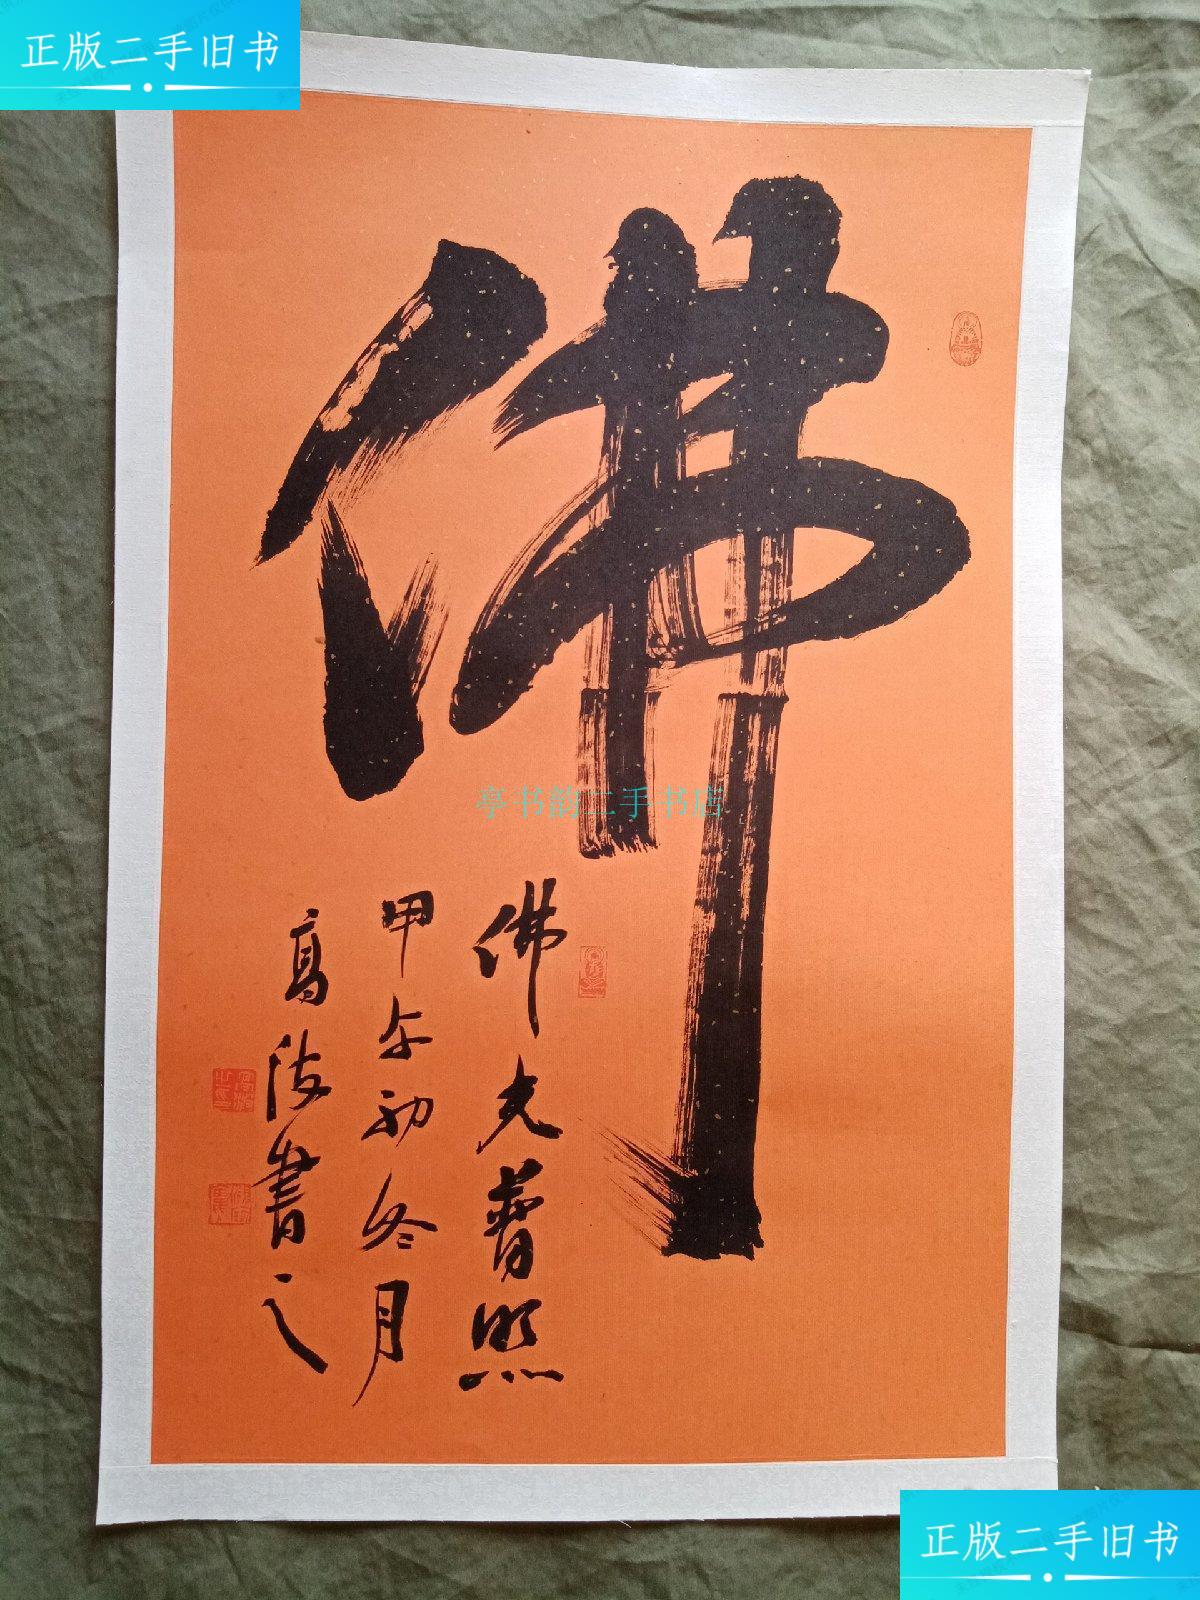 正版二手旧书
佛
亭书韵二手书店
佛光普照
甲午初冬月
高波書之
正版二手旧书